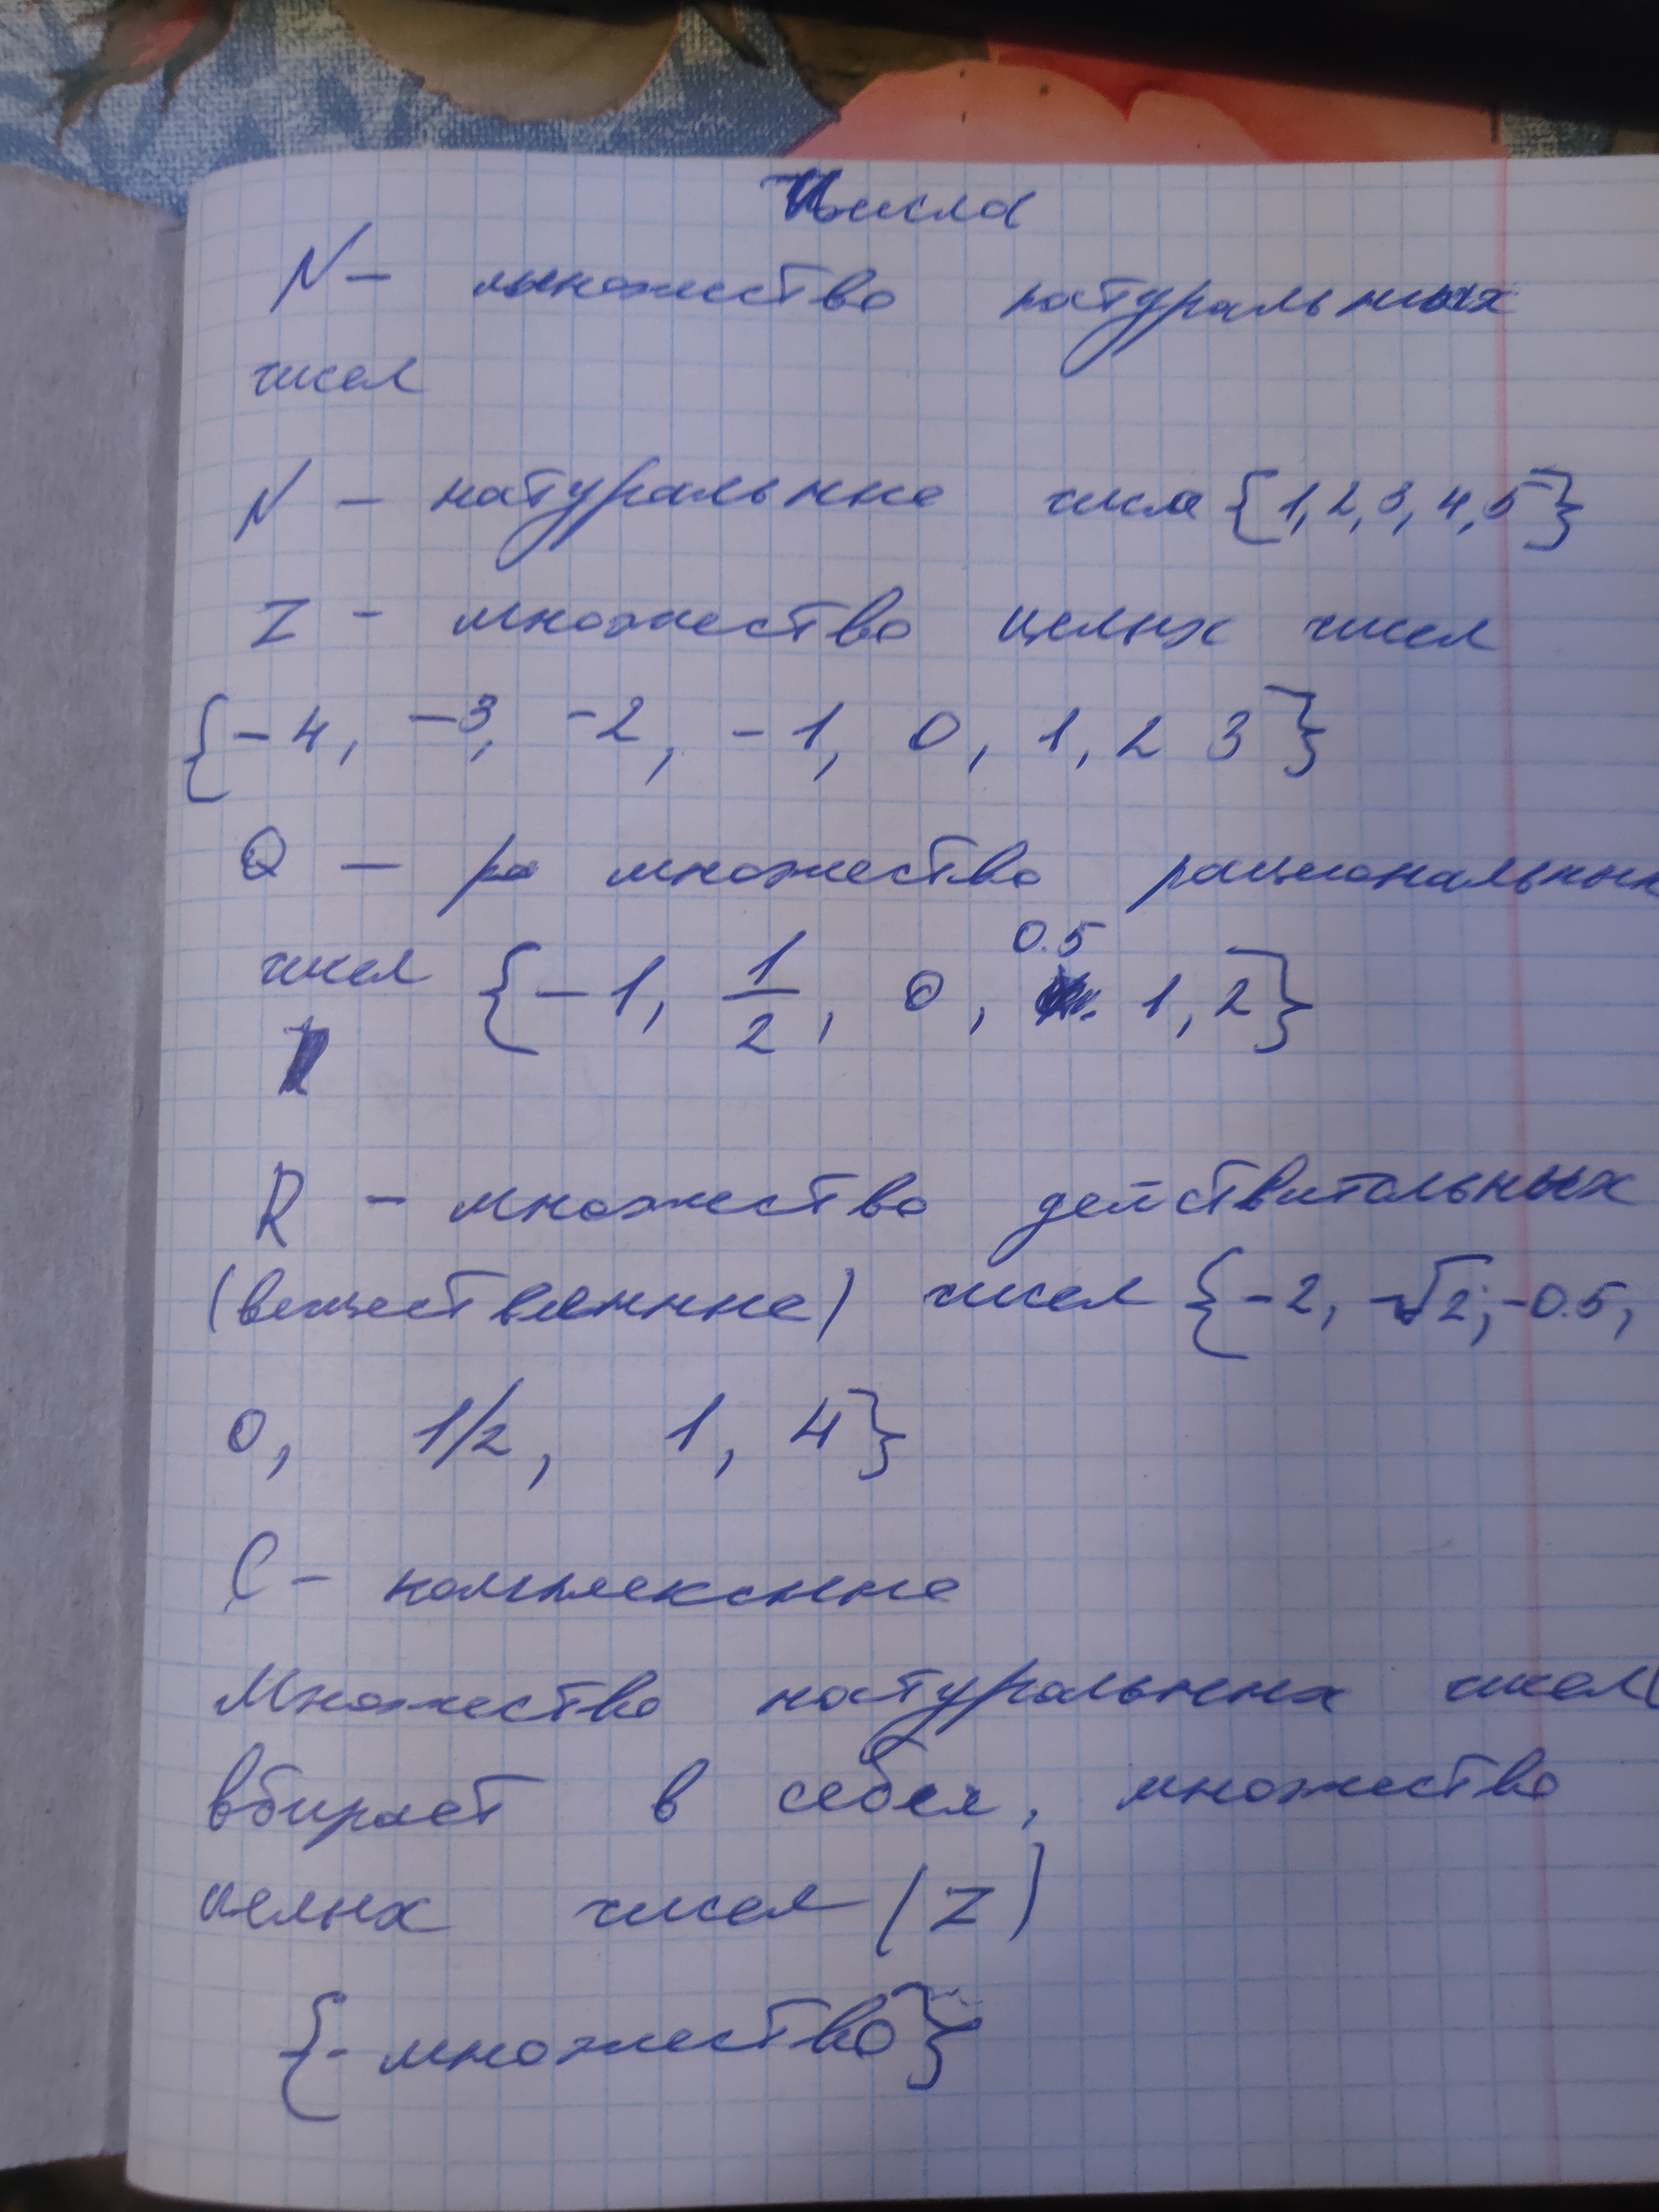 Числа
N – множество натуральных
чисел
N – натуральные числа {1, 2, 3, 4, 5}
Z – множество целых чисел
{-4, -3, -2, -1, 0, 1, 2 3}
Q – ра множество рациональных
0.5
чисел {-1, 1/2, 0, 1, 2}
R – множество действительных
(вещественные) чисел {-2, -√2; -0.5,
0, 1/2, 1, 4}
C – комплексные
Множество натуральных чисел
вбирает в себя, множество
целых чисел (Z)
{- множество}